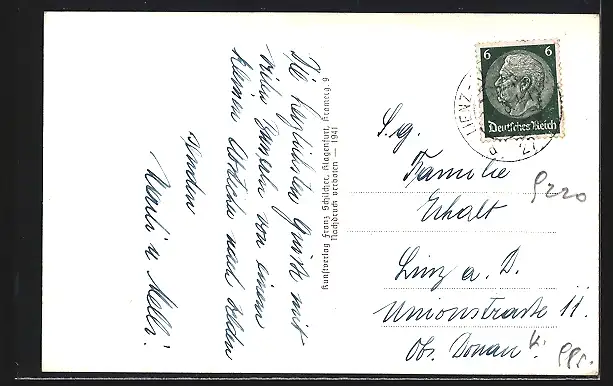 Die herzlichsten Grüße mit
vielen Busseln von einem
kleinen Abstecher nach
senden
Mali u
Kunstverlag Franz Schilcher, Klagenfurt, Kramerg. 9
Nachdruck verboten — 1941
6 6
Deutsches Reich
LIENZ
S. g.
Familie
Erhalt
Linz a. D.
Unionstraße 11.
Ob. Donau